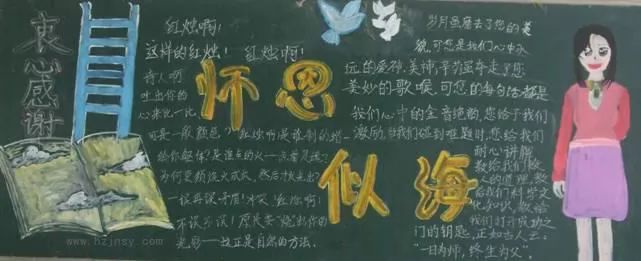 衷心感谢
红烛啊!
这样的红烛! 红烛啊!
诗人啊
吐出你的
心来比一比
可是一般颜色?
师恩
似海
岁月虽磨去了您的美
貌,可您是我们心中永
远的爱神、美神,辛劳虽夺走了您
美妙的歌喉,可您的每句话都是
我们心中的金音绝韵,您给于我们
激励,当我们碰到难题时,您给我们
耐心讲解
教给我们做
人的道理,教
给我们科学文
化知识,教给
我们打开成功之
门的钥匙,正如古人云:
“一日为师,终生为父”。
给你躯体?是谁点的火——点着灵魂?
为何更须烧火成灰,然后才放光出?
一误再误矛盾!冲突!红烛啊!
不误,不误!原是要“烧”出你的
光彩——这正是自然的方法.
www.hzjnsy.com